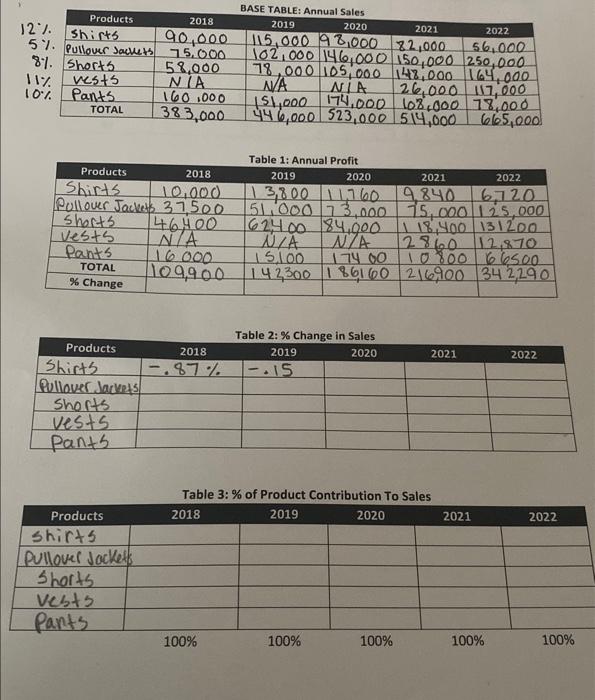 BASE TABLE: Annual Sales
Products 2018 2019 2020 2021 2022
12% Shirts 90,000 115,000 98,000 82,000 56,000
5% Pullover Jackets 75,000 102,000 146,000 150,000 250,000
8% Shorts 58,000 78,000 105,000 148,000 164,000
11% Vests N/A N/A N/A 26,000 117,000
10% Pants 160,000 151,000 174,000 108,000 78,000
TOTAL 383,000 446,000 523,000 514,000 665,000
Table 1: Annual Profit
Products 2018 2019 2020 2021 2022
Shirts 10,000 13,800 11,760 9,840 6,720
Pullover Jackets 37,500 51,000 73,000 75,000 125,000
Shorts 46,400 62,400 84,000 118,400 131200
Vests N/A N/A N/A 2860 12,870
Pants 16000 15,100 17400 10800 66500
TOTAL 109,900 142,300 186,160 216,900 342,290
% Change
Table 2: % Change in Sales
Products 2018 2019 2020 2021 2022
Shirts -.87% -.15
Pullover Jackets
Shorts
Vests
Pants
Table 3: % of Product Contribution To Sales
Products 2018 2019 2020 2021 2022
Shirts
Pullover Jackets
Shorts
Vests
Pants
100% 100% 100% 100% 100%